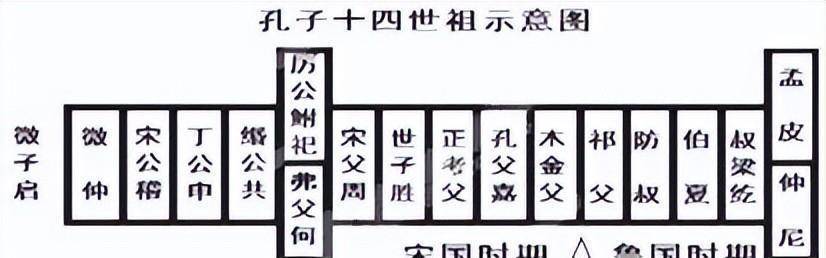 孔子十四世祖示意图
微子启
微仲
宋公稽
丁公申
缗公共
历公鲋祀
弗父何
宋父周
世子胜
正考父
孔父嘉
木金父
祁父
防叔
伯夏
叔梁纥
孟皮
仲尼
宋国时期 △ 鲁国时期